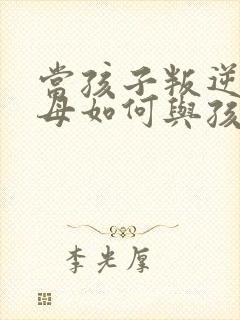 當孩子叛逆
母如何與孩
李光厚